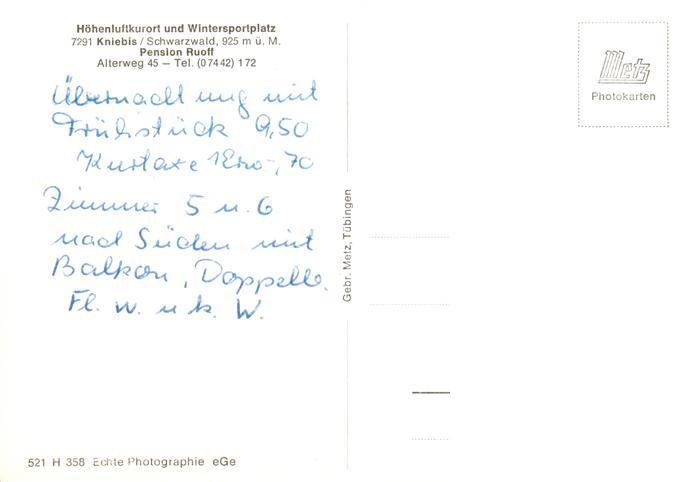 Höhenluftkurort und Wintersportplatz
7291 Kniebis / Schwarzwald, 925 m ü. M.
Pension Ruoff
Alterweg 45 — Tel. (07442) 172
Übernachtung mit
Frühstück 9,50
Kurtaxe -,70
Zimmer 5 u. 6
nach Süden mit
Balkon, Doppelb.
Fl. w. u k. W.
Gebr. Metz, Tübingen
Metz
Photokarten
521 H 358 Echte Photographie eGe